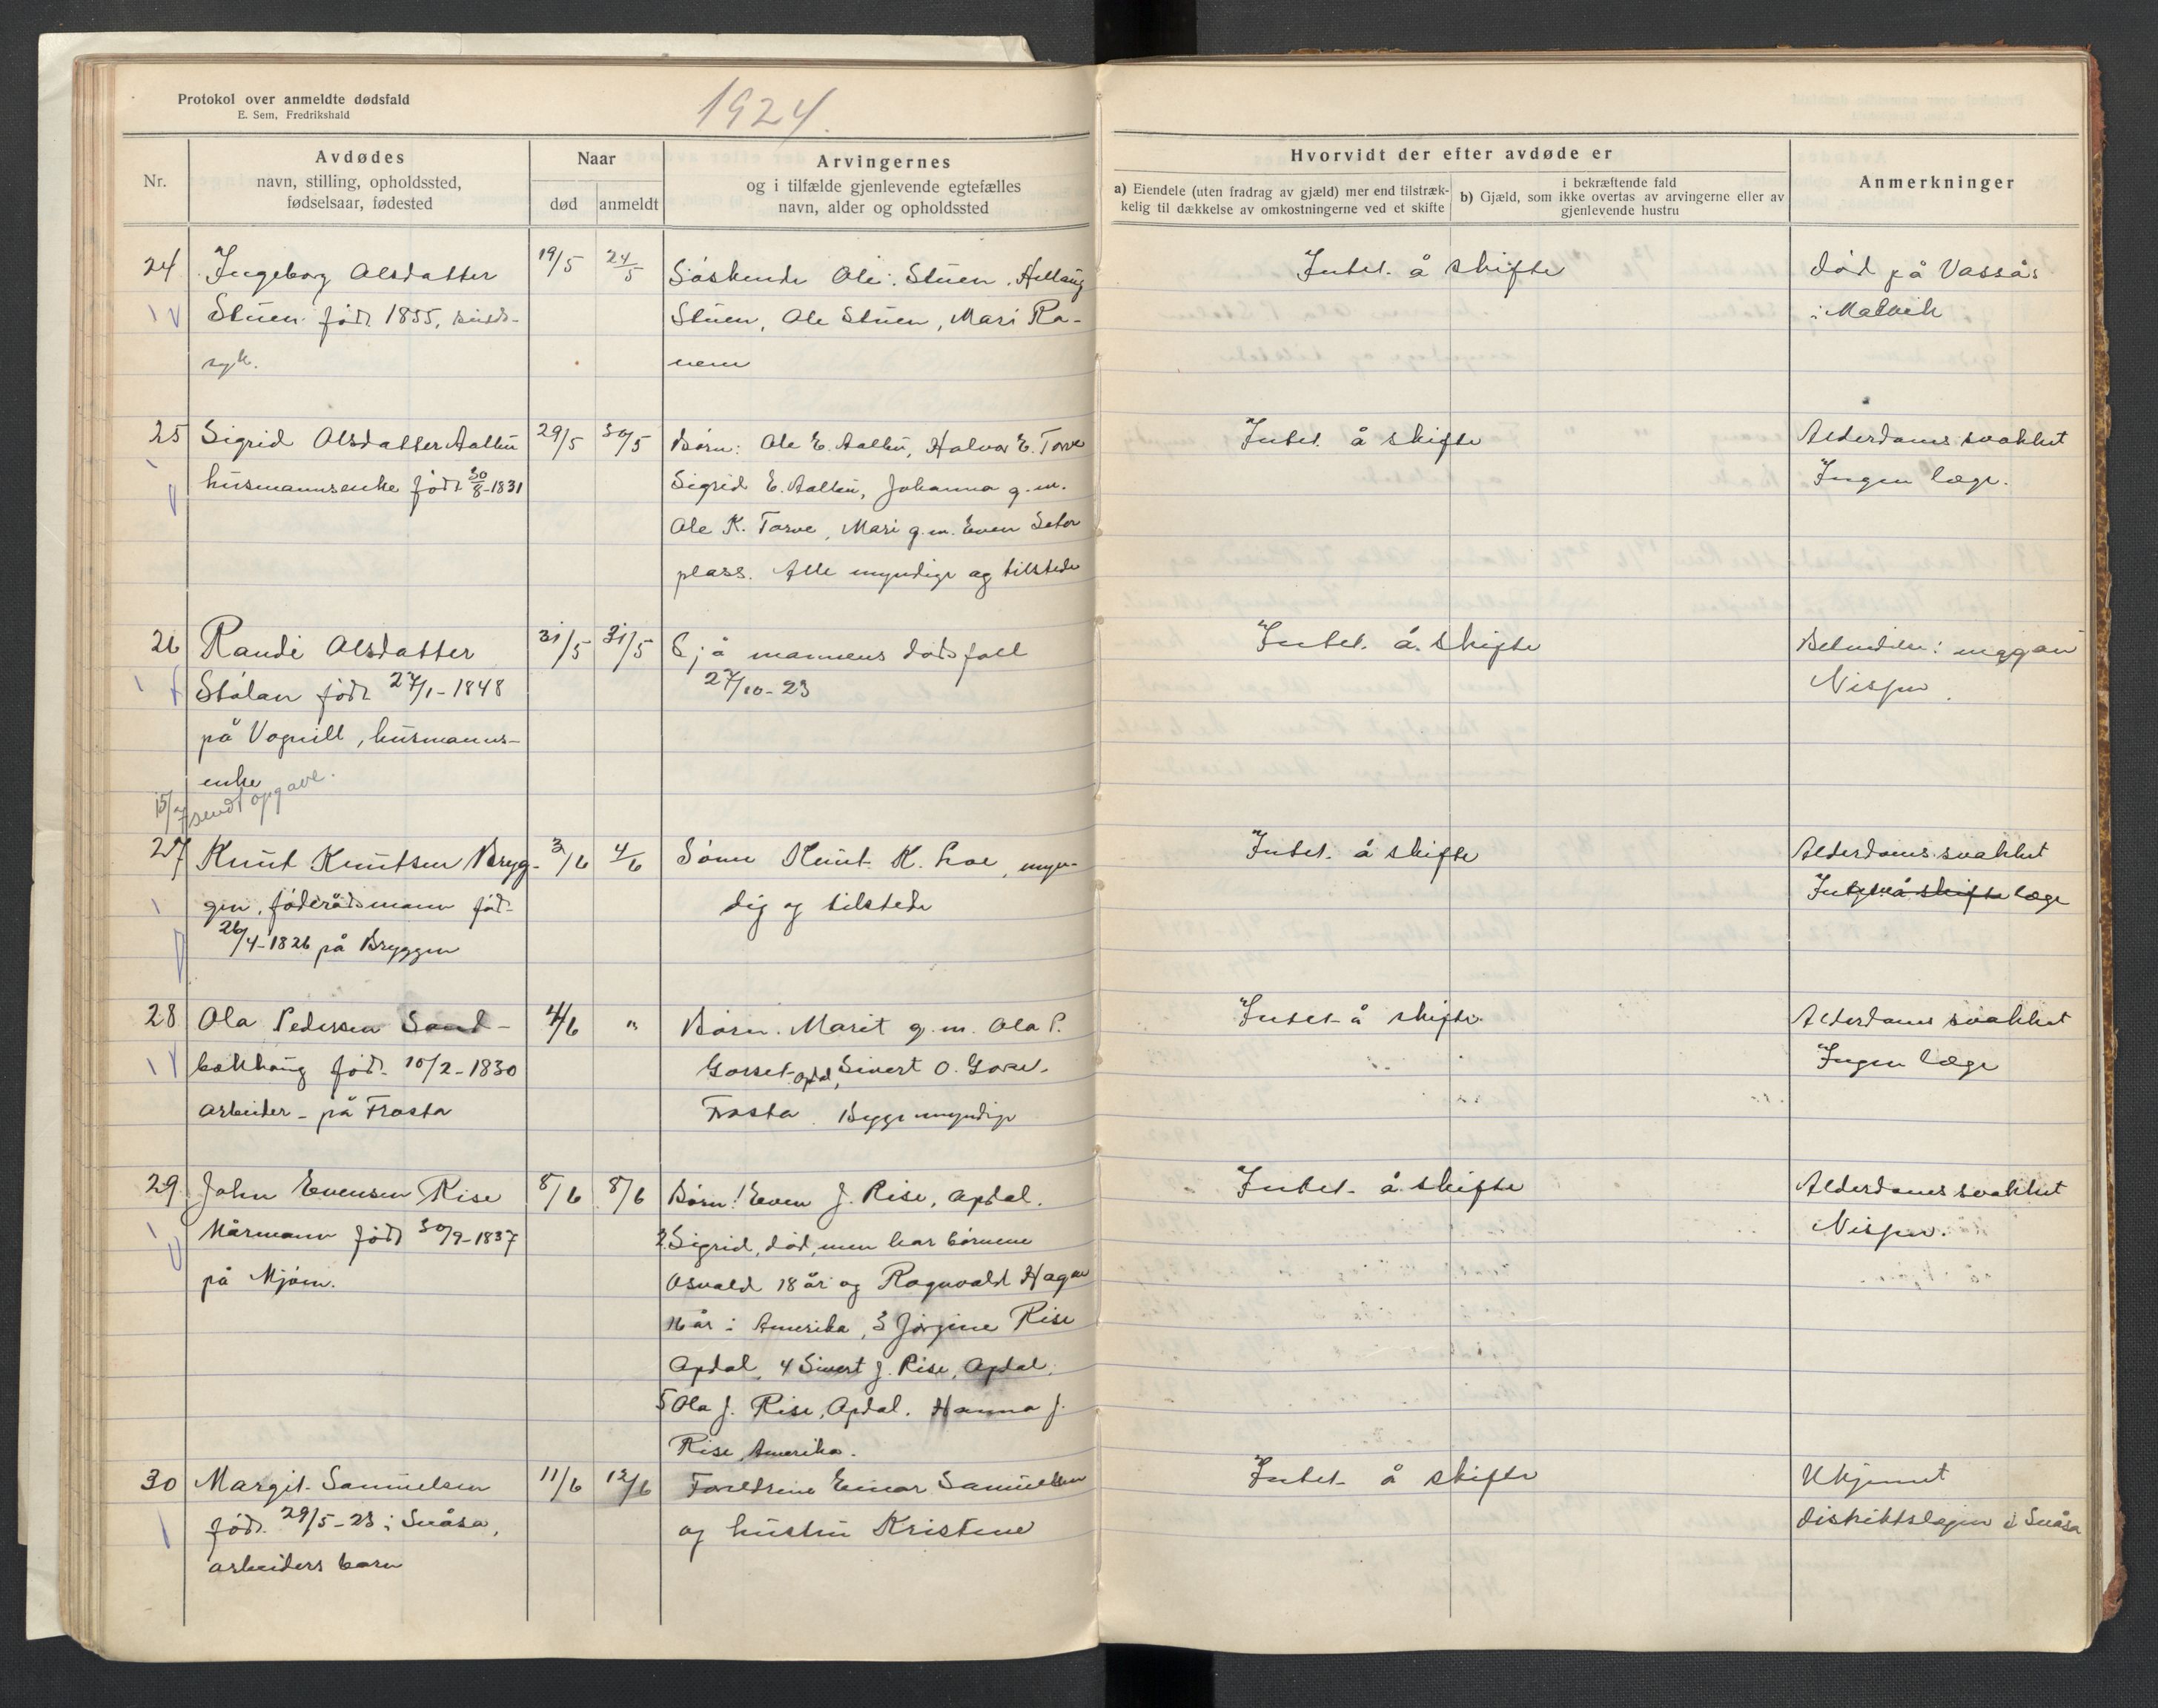 Protokol over anmeldte dødsfald
E. Sem, Fredrikshald
1924.
Nr.
Avdødes
navn, stilling, opholdssted,
fødselsaar, fødested
Naar
død
anmeldt
Arvingernes
og i tilfælde gjenlevende egtefælles
navn, alder og opholdssted
Hvorvidt der efter avdøde er
a) Eiendele (uten fradrag av gjæld) mer end tilstræk-
kelig til dækkelse av omkostningerne ved et skifte
i bekræftende fald
b) Gjæld, som ikke overtas av arvingerne eller av
gjenlevende hustru
Anmerkninger
24
Ingeborg Olsdatter
Stuen født 1855, sinds-
syk.
19/5
24/5
Søskende Ole Stuen, Hellaug
Stuen, Ole Stuen, Mari Ra-
nem
Intet å skifte
død på Vassås
i Malvik
25
Sigrid Olsdatter Aalbu
husmannsenke født 30/8-1831
29/5
30/5
Børn: Ole E. Aalbu, Halvor E. Torve
Sigrid E. Aalbu, Johanna g.m.
Ole K. Torve, Mari g.m. Even Seter
plass. Alle myndige og tilstede
Intet å skifte
Alderdomssvakhet
Ingen læge.
26
Randi Olsdatter
Stølan født 27/1-1848
på Vognill, husmanns-
enke
31/5
31/5
Sjå mannens dødsfall
27/10-23
Intet å skifte
Nisjen.
15/7 sendt opgave.
27
Knut Knutsen Bryg-
gen, føderådsmann født
26/4-1826 på Bryggen
3/6
4/6
Sønn Knut K. Loe, myn-
dig og tilstede
Intet å skifte
Alderdomssvakhet
læge
28
Ola Pedersen Sand-
bækhaug født 10/2-1830
arbeider - på Frosta
4/6
"
Børn. Marit g.m. Ola P.
Gorset Opdal, Sivert O. Gorset.
Frosta. Begge myndige
Intet å skifte
Alderdomssvakhet
Ingen læge
29
John Evensen Rise
Kårmann født 30/9-1837
på Mjøen.
8/6
8/6
Børn! Even J. Rise, Opdal.
2 Sigrid, død, men har børnene
Osvald 18 år og Ragnvald Hagen
16 år i Amerika, 3 Jørgine Rise
Opdal, 4 Sivert J. Rise, Opdal.
5 Ola J. Rise, Opdal. Hanna J.
Rise, Amerika.
Intet å skifte
Alderdomssvakhet
Nisjen.
30
Margit Samuelsen
født 29/5-23 i Snåsa,
arbeiders barn
11/6
12/6
Foreldrene Einar Samuelsen
og hustru Kristine
Intet å skifte
Ukjennt
distriktslægen i Snåsa